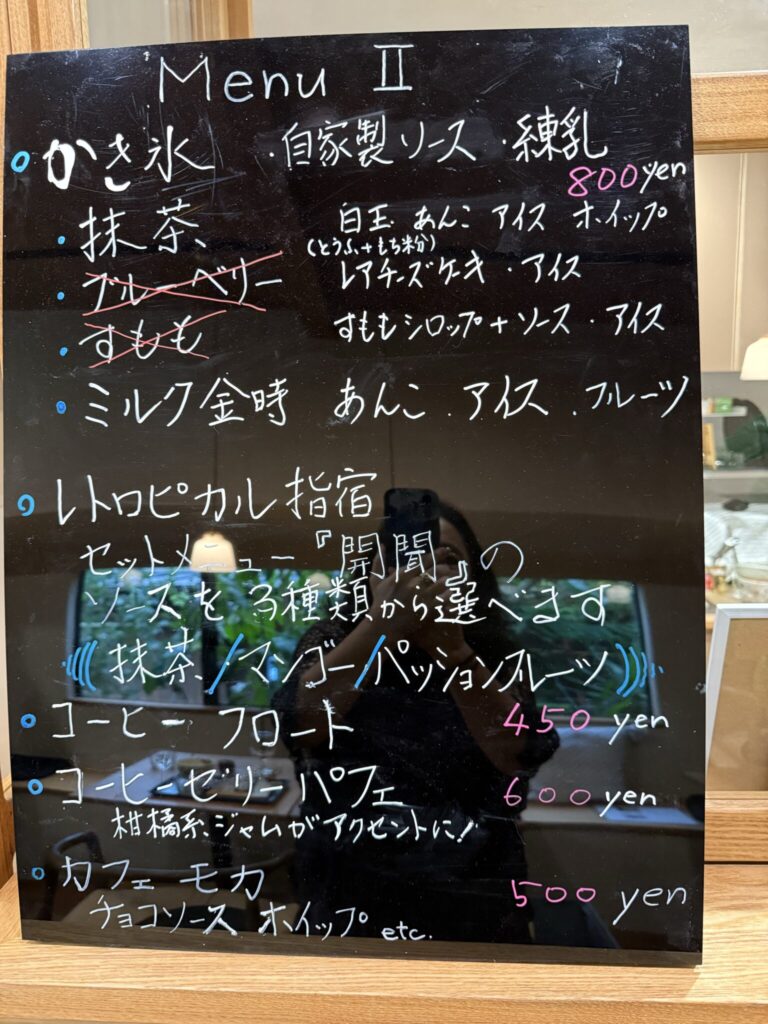 Menu Ⅱ
かき氷 ・自家製ソース ・練乳
800yen
・抹茶 白玉 あんこ アイス ホイップ
(とうふ+もち粉)
・ブルーベリー レアチーズケーキ・アイス
・すもも すももシロップ+ソース・アイス
・ミルク金時 あんこ.アイス.フルーツ
レトロピカル指宿
セットメニュー『開聞』の
ソースを3種類から選べます
(((抹茶/マンゴー/パッションフルーツ)))
コーヒーフロート 450 yen
コーヒーゼリーパフェ 600 yen
柑橘系、ジャムがアクセントに!
カフェモカ 500 yen
チョコソース ホイップ etc.